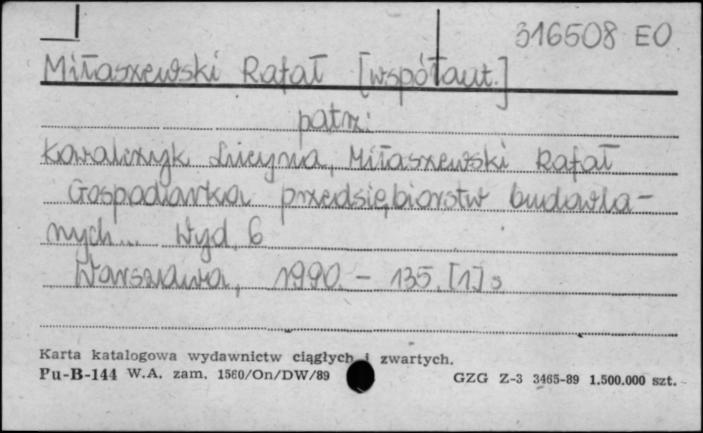 316508 EO
Miłaszewski Rafał [współaut.]
patrz:
Kowalczyk Lucyna, Miłaszewski Rafał
Gospodarka przedsiębiorstw budowla-
nych... Wyd. 6
Warszawa, 1990. - 135, [1] s
Karta katalogowa wydawnictw ciągłych i zwartych.
Pu-B-144 W.A. zam. 1560/On/DW/89 GZG Z-3 3465-89 1.500.000 szt.